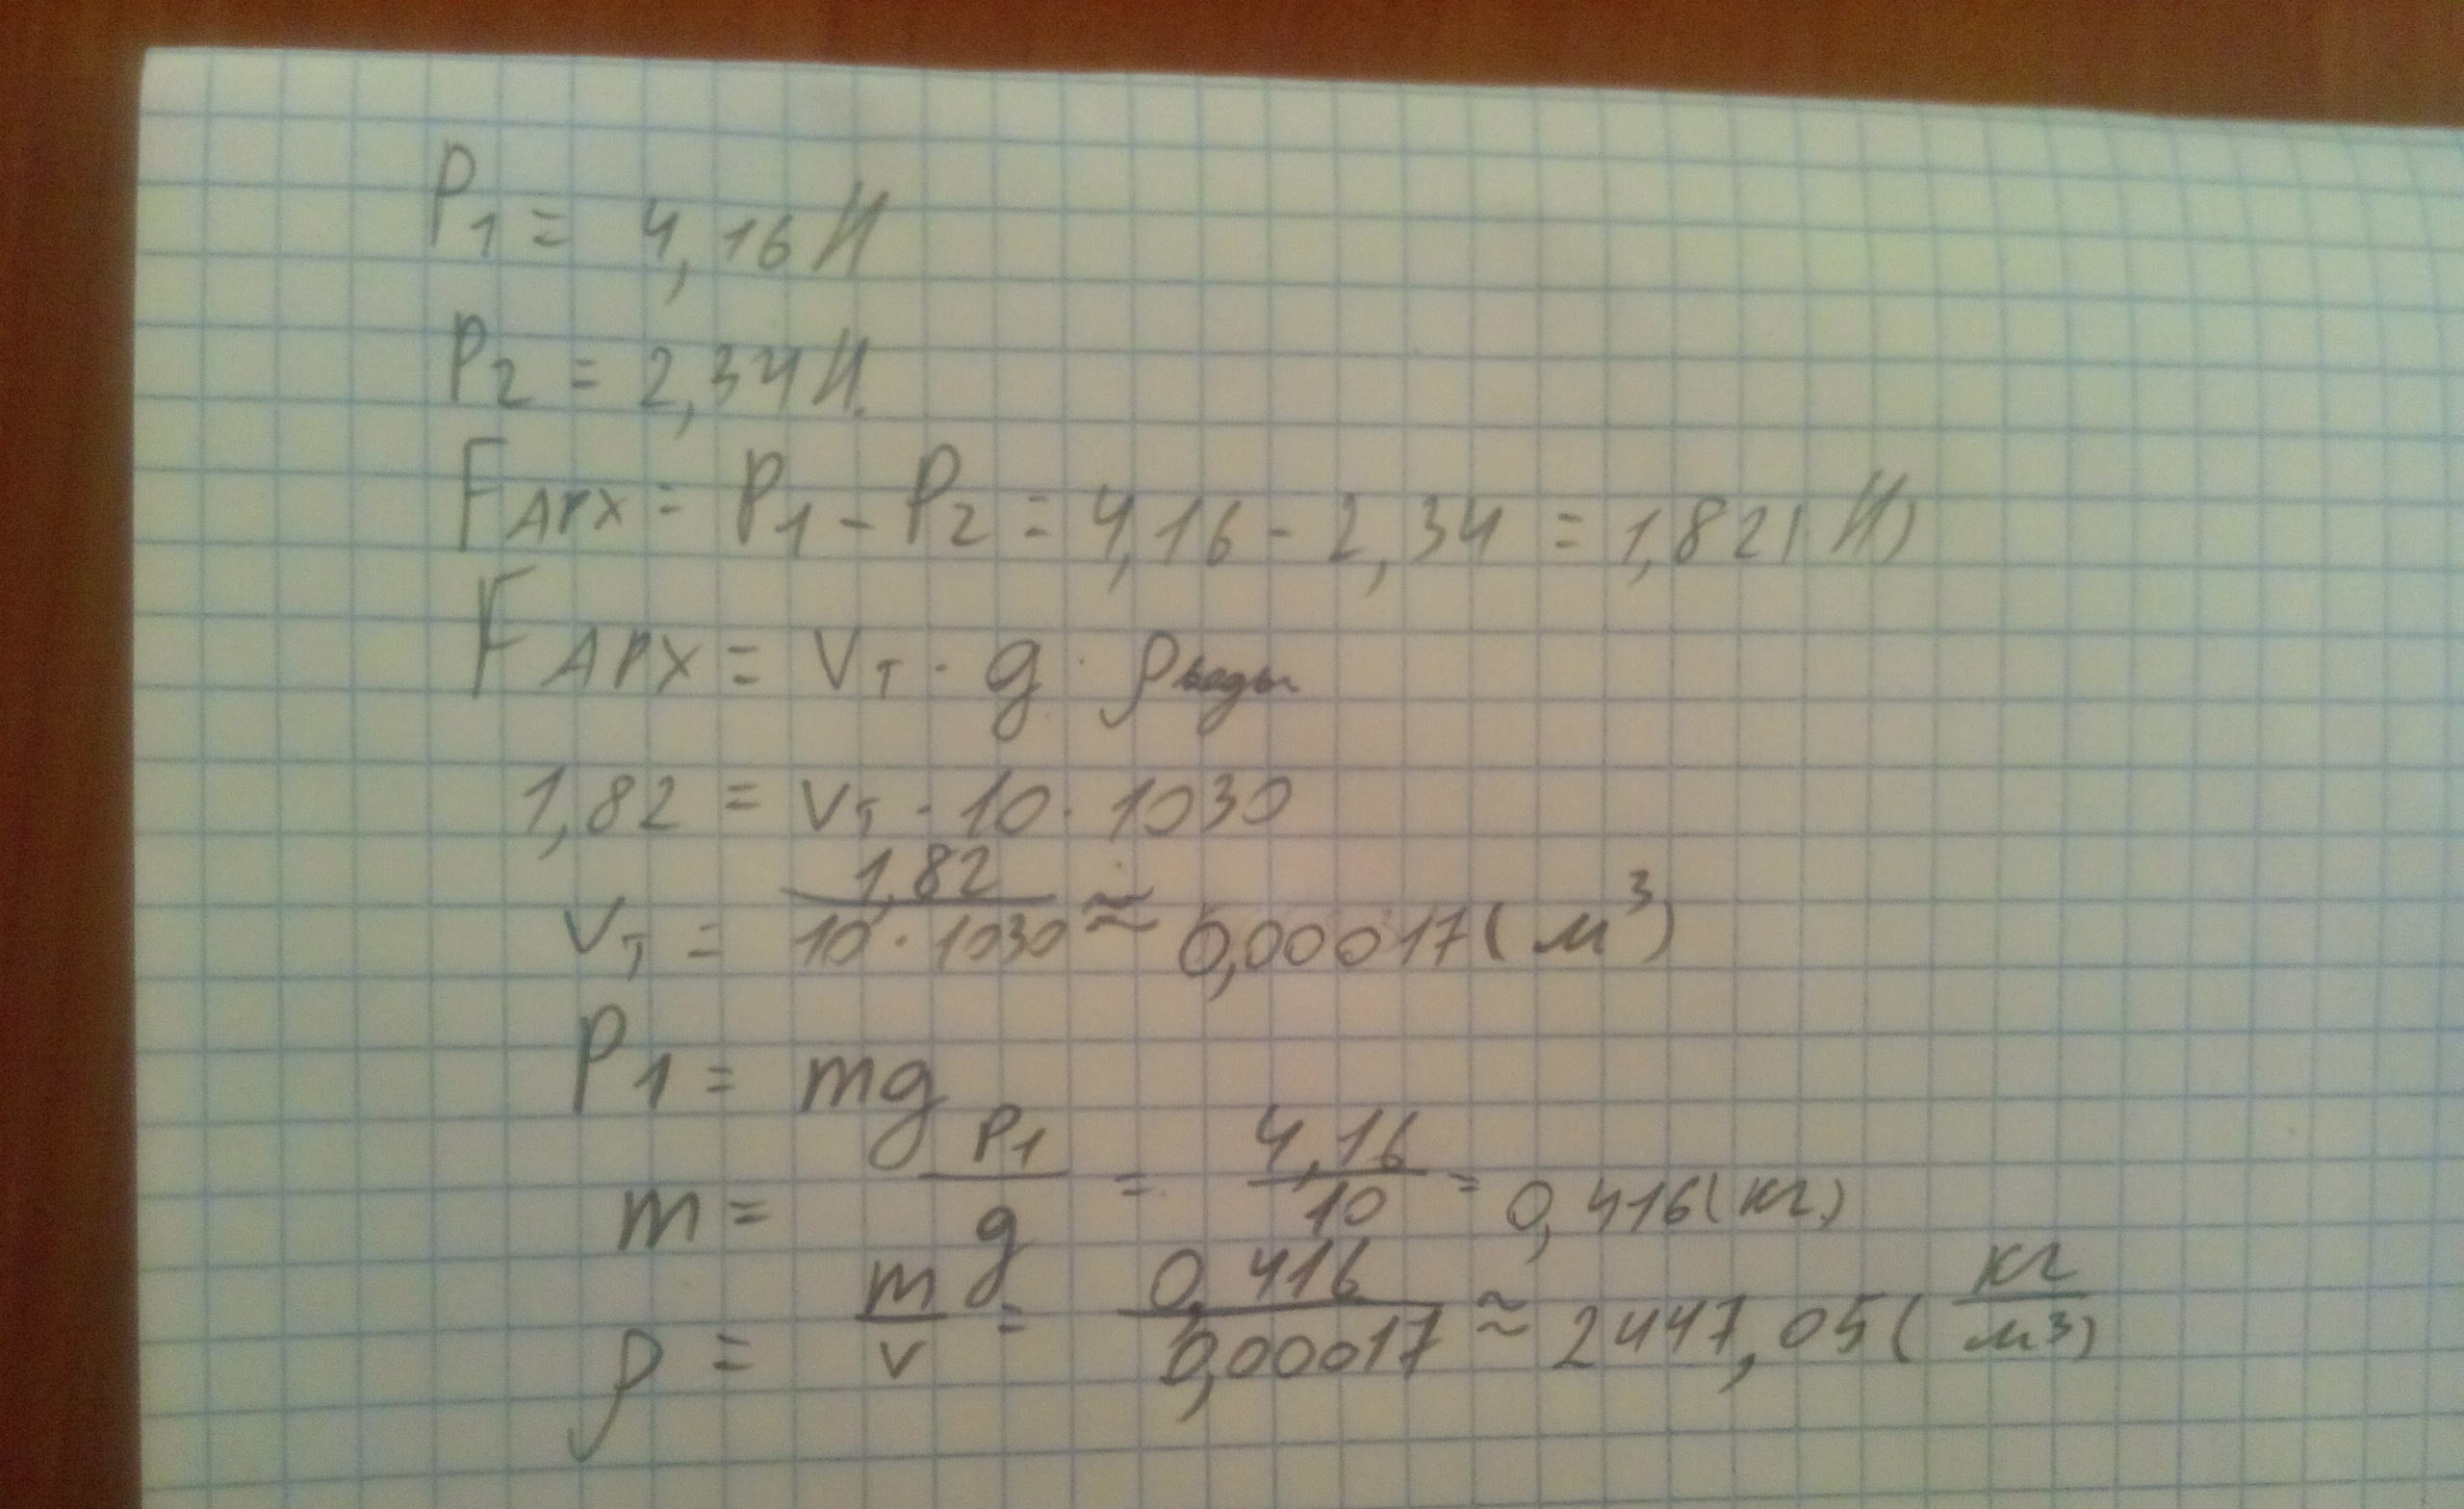 P₁ = 4,16 Н
P₂ = 2,34 Н.
F АРХ = P₁ - P₂ = 4,16 - 2,34 = 1,82( Н)
F АРХ = Vт · g · ρ воды
1,82 = Vт · 10 · 1030
Vт = 1,82 / 10 · 1030 ≈ 0,00017( м³)
P₁ = mg
m = P₁ / g = 4,16 / 10 = 0,416(кг)
ρ = m / v = 0,416 / 0,00017 ≈ 2447,05( кг / м³)